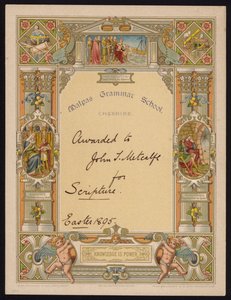 Malpas Grammar School.
CHESHIRE.
Awarded to
John T. Metcalfe
for
Scripture.
Easter 1895.
KNOWLEDGE IS POWER